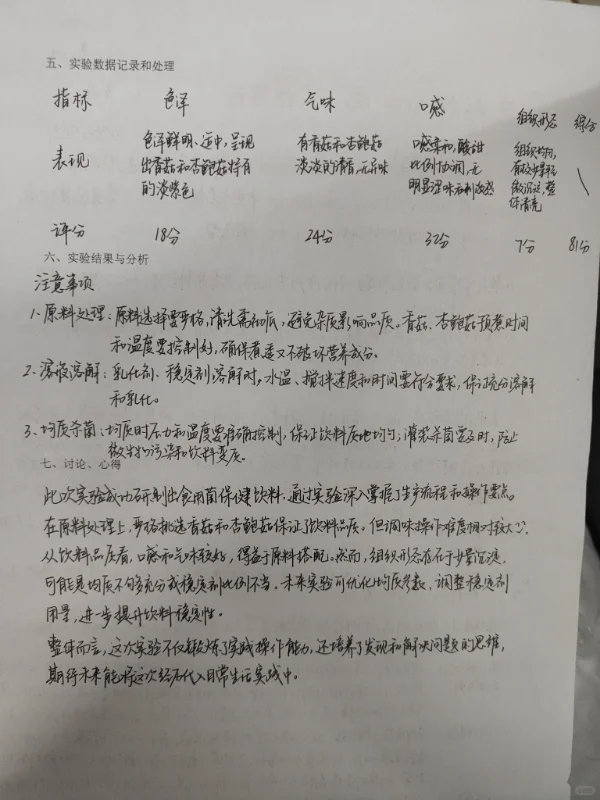 五、实验数据记录和处理
指标 色泽 气味 口感 组织形态 得分
表现 色泽鲜明、适中,呈现 有香菇和杏鲍菇 口感柔和,酸甜 组织均匀,
出香菇和杏鲍菇特有 淡淡的清香,无异味 比例协调,无 有极少量轻
的淡紫色 明显涩味和刺激感 微沉淀,整
体清亮
评分 18分 24分 32分 7分 81分
六、实验结果与分析
注意事项
1、原料处理:原料选择要严格,清洗需彻底,避免杂质影响品质。香菇、杏鲍菇预煮时间
和温度要控制好,确保煮透又不破坏营养成分。
2、溶液溶解:乳化剂、稳定剂溶解时,水温、搅拌速度和时间要符合要求,保证充分溶解
和乳化。
3、均质杀菌:均质时压力和温度要准确控制,保证饮料质地均匀;灌装杀菌要及时,防止
微生物污染和饮料变质。
七、讨论、心得
此次实验成功研制出食用菌保健饮料,通过实验深入掌握了生产流程和操作要点。
在原料处理上,严格挑选香菇和杏鲍菇保证了饮料品质。但调味操作难度相对较大,
从饮料品质看,口感和气味较好,得益于原料搭配。然而,组织形态存在少量沉淀,
可能是均质不够充分或稳定剂比例不当。未来实验可优化均质参数,调整稳定剂
用量,进一步提升饮料稳定性。
整体而言,这次实验不仅锻炼了实践操作能力,还培养了发现和解决问题的思维,
期待未来能将这次经历代入日常生活实践中。